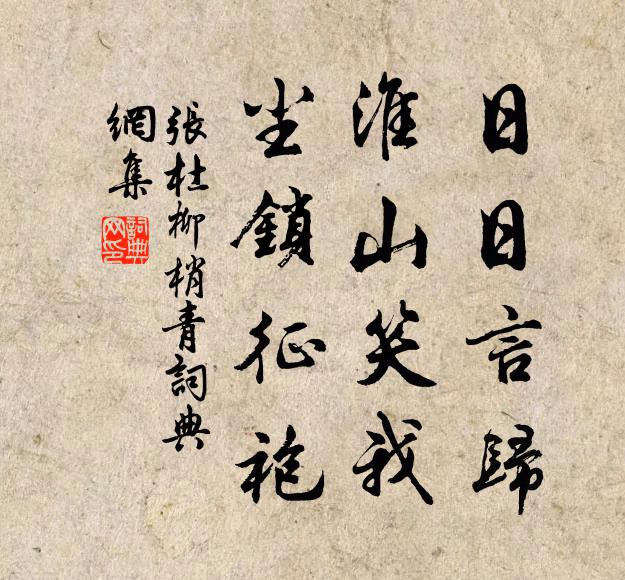 日日言歸
淮山笑我
尘鎖征袍
張杜柳梢青詞典
網集
詞典
网印